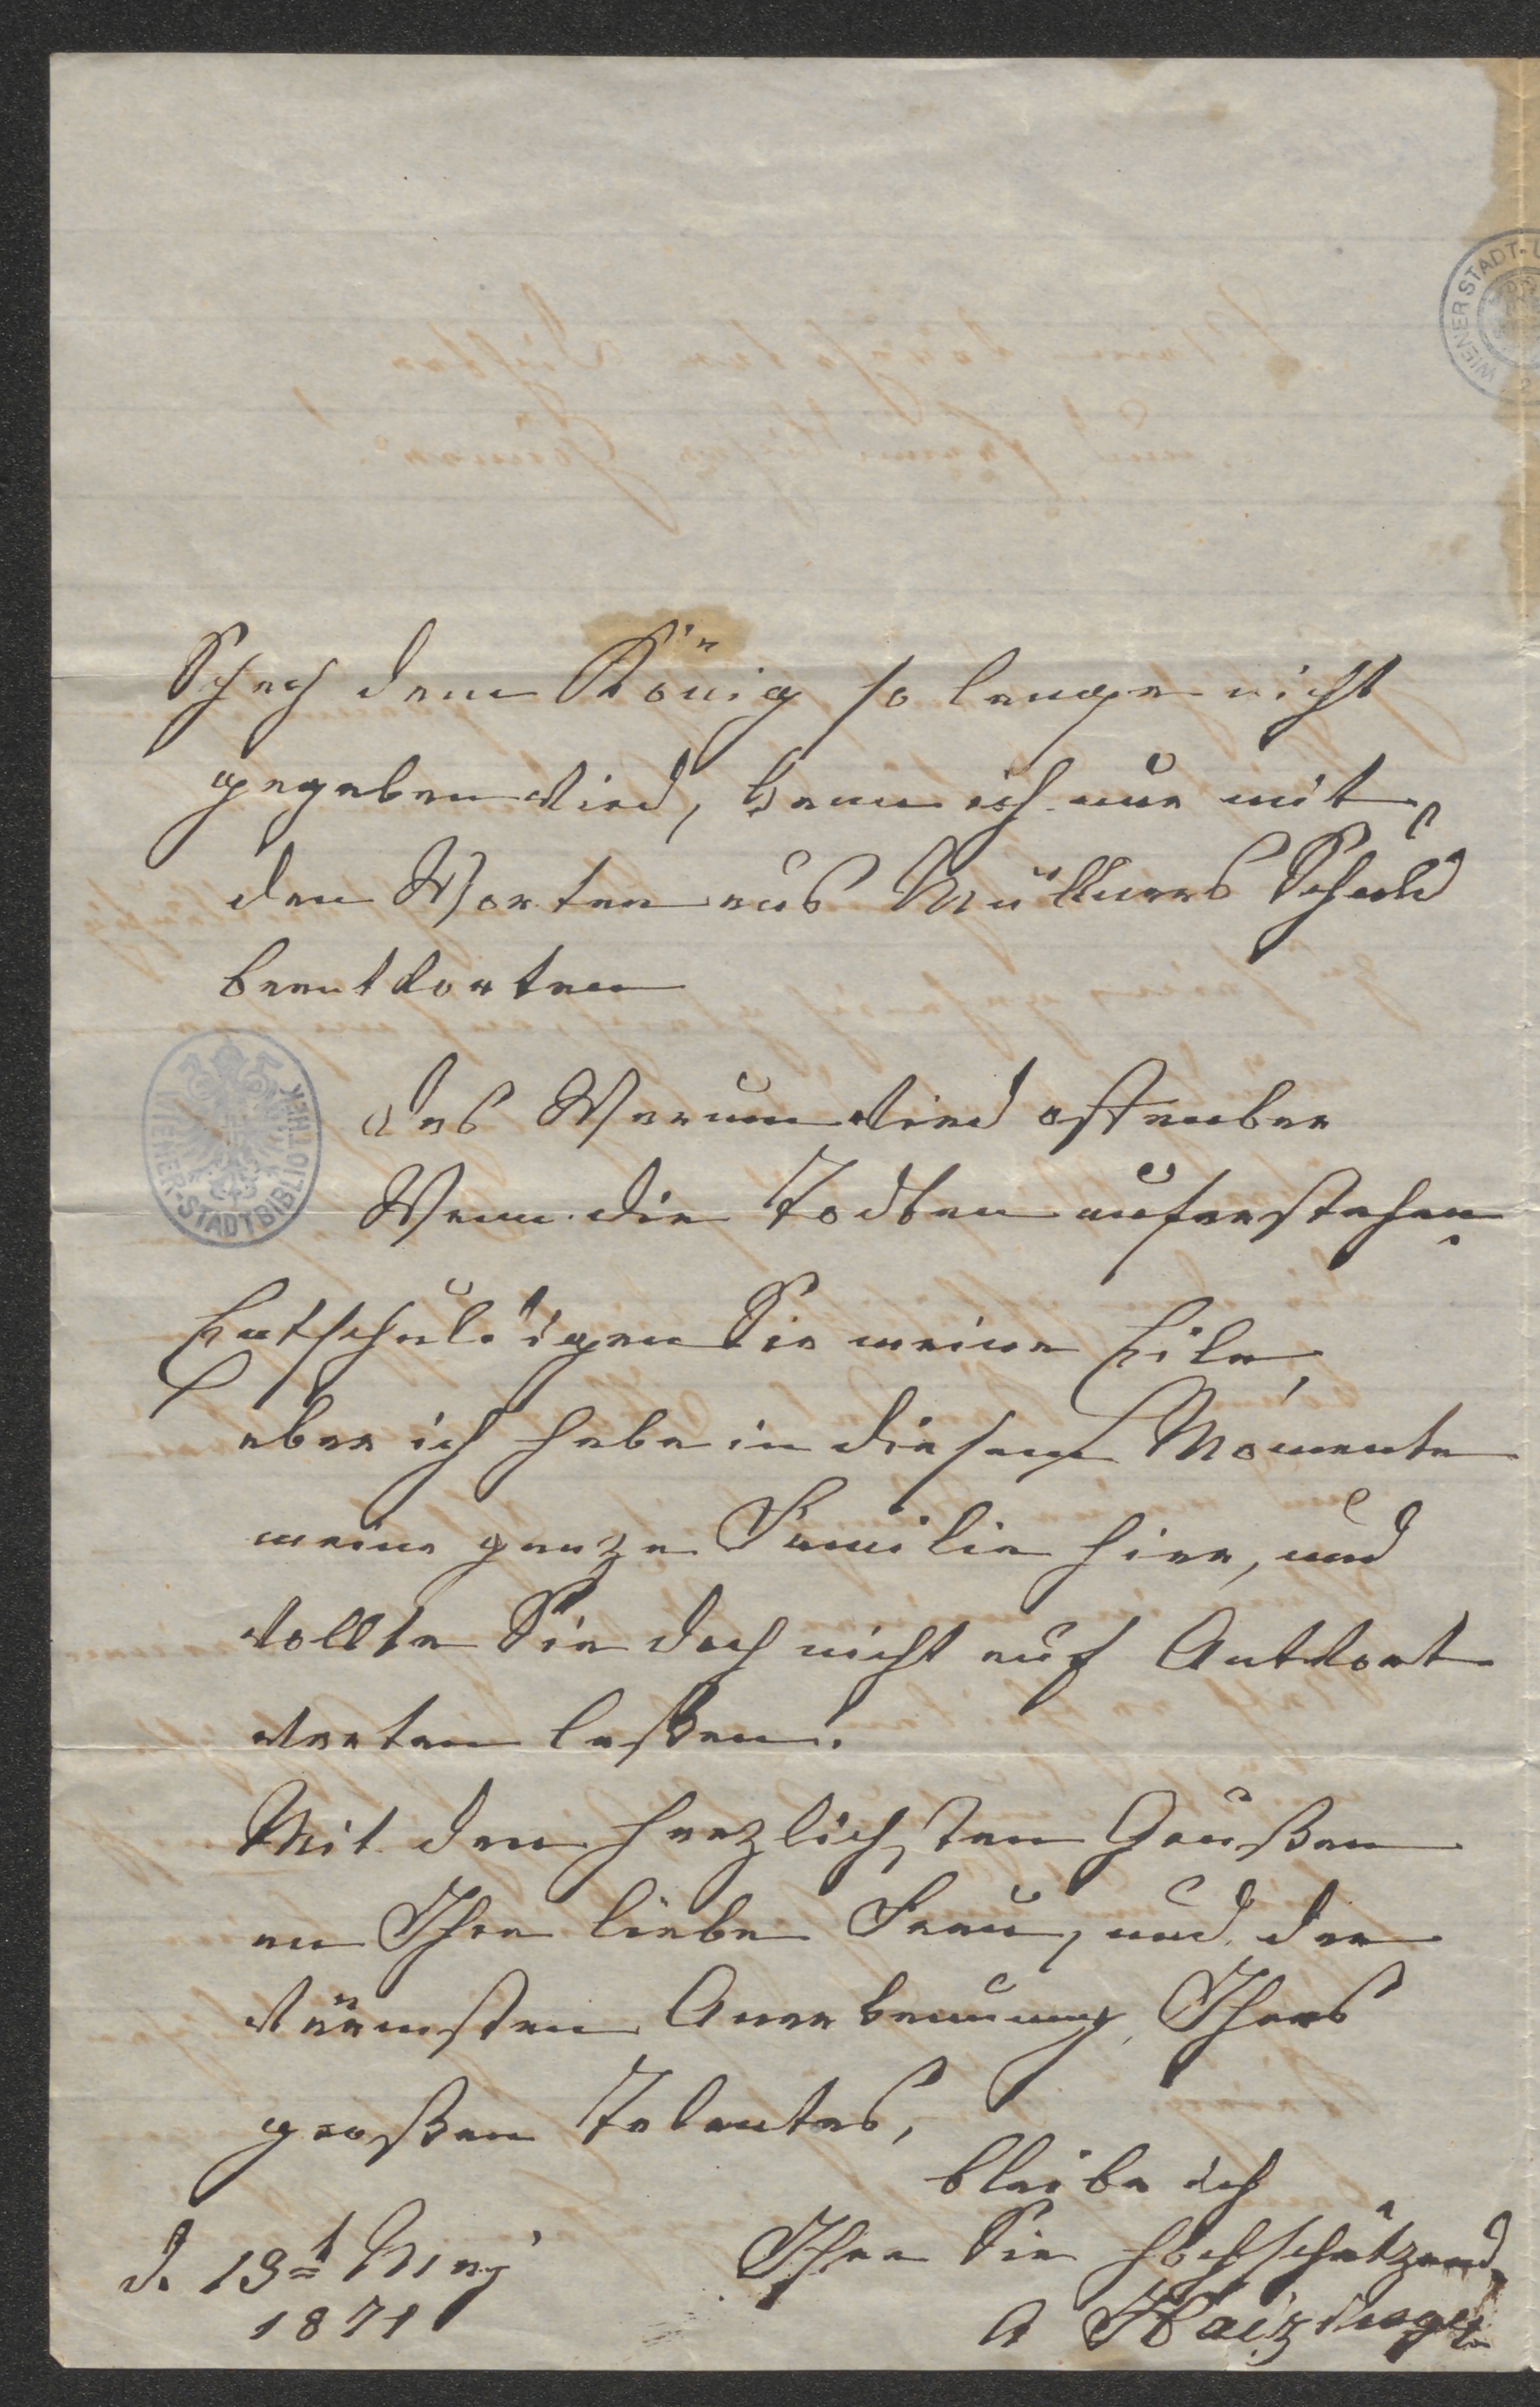 WIENER STADT-
Schach dem König so lange nicht
gegeben wird, kann ich nur mit
den Worten aus Müllners Schuld
beantworten
Das Warum wird offenbar
Wenn die Todten auferstehen.
Entschuldigen Sie meine Eile,
aber ich habe in diesem Momente
meine ganze Familie hier, und
wollte Sie doch nicht auf Antwort
warten laßen.
Mit den herzlichsten Grüßen
an Ihre liebe Frau, und der
wärmsten Anerkennung Ihres
großen Talentes,
bleibe ich
Ihre Sie hochschätzende
A Haizinger
d. 13t May
1871
WIENER-STADTBIBLIOTHEK